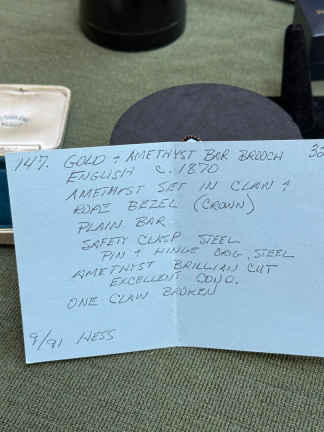 147. GOLD + AMETHYST BAR BROOCH 32
ENGLISH c. 1870
AMETHYST SET IN CLAW +
ROPE BEZEL (CROWN)
PLAIN BAR
SAFETY CLASP STEEL
PIN + HINGE ORIG. STEEL
AMETHYST BRILLIAN CUT
EXCELLENT COND.
ONE CLAW BROKEN
9/91 HESS